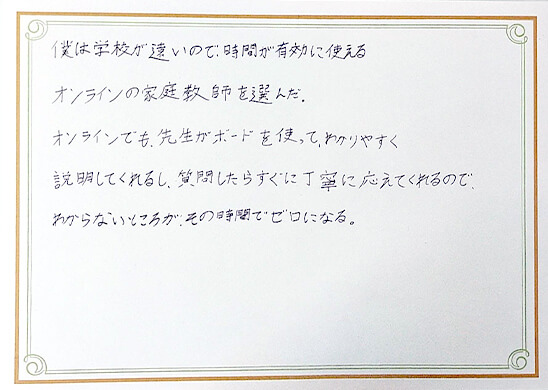 僕は学校が遠いので、時間が有効に使える
オンラインの家庭教師を選んだ。
オンラインでも、先生がボードを使って、わかりやすく
説明してくれるし、質問したらすぐに丁寧に応えてくれるので、
わからないところが、その時間でゼロになる。